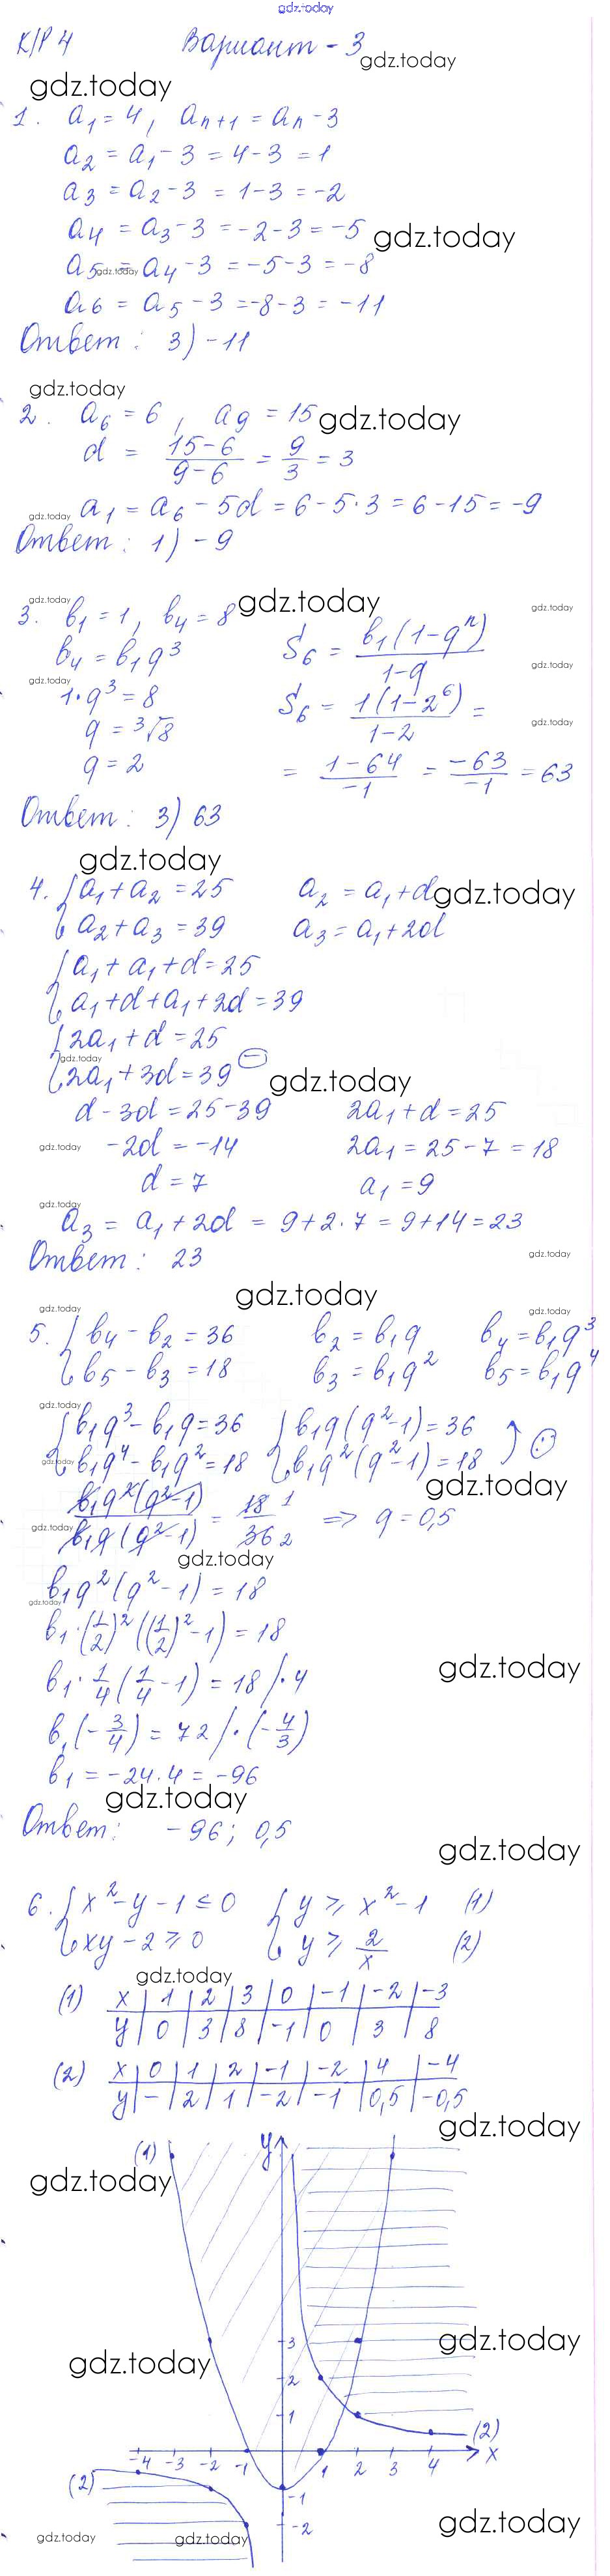 gdz.today
К/Р 4 Вариант - 3
gdz.today
gdz.today
1. a₁ = 4, aₙ₊₁ = aₙ - 3
a₂ = a₁ - 3 = 4 - 3 = 1
a₃ = a₂ - 3 = 1 - 3 = -2
a₄ = a₃ - 3 = -2 - 3 = -5 gdz.today
a₅ = a₄ - 3 = -5 - 3 = -8
gdz.today
a₆ = a₅ - 3 = -8 - 3 = -11
Ответ: 3) -11
gdz.today
2. a₆ = 6, a₉ = 15 gdz.today
d = (15-6)/(9-6) = 9/3 = 3
gdz.today a₁ = a₆ - 5d = 6 - 5·3 = 6 - 15 = -9
Ответ: 1) -9
gdz.today gdz.today gdz.today
3. b₁ = 1, b₄ = 8 S₆ = b₁(1-qⁿ)/(1-q)
b₄ = b₁q³ gdz.today
gdz.today
1·q³ = 8 S₆ = 1(1-2⁶)/(1-2) =
q = ³√8 gdz.today
q = 2 = (1-64)/-1 = -63/-1 = 63
Ответ: 3) 63
gdz.today
4. { a₁ + a₂ = 25 a₂ = a₁ + d gdz.today
{ a₂ + a₃ = 39 a₃ = a₁ + 2d
{ a₁ + a₁ + d = 25
{ a₁ + d + a₁ + 2d = 39
{ 2a₁ + d = 25
gdz.today
{ 2a₁ + 3d = 39 (-) gdz.today
d - 3d = 25 - 39 2a₁ + d = 25
gdz.today -2d = -14 2a₁ = 25 - 7 = 18
d = 7 a₁ = 9
gdz.today
a₃ = a₁ + 2d = 9 + 2·7 = 9 + 14 = 23
Ответ: 23 gdz.today
gdz.today
gdz.today gdz.today
5. { b₄ - b₂ = 36 b₂ = b₁q b₄ = b₁q³
{ b₅ - b₃ = 18 b₃ = b₁q² b₅ = b₁q⁴
gdz.today
{ b₁q³ - b₁q = 36 { b₁q(q²-1) = 36
{ b₁q⁴ - b₁q² = 18 { b₁q²(q²-1) = 18 (:)
gdz.today
gdz.today
b₁q²(q²-1)/b₁q(q²-1) = 18 1/36 2 => q = 0,5
gdz.today
gdz.today
b₁q²(q²-1) = 18
gdz.today
b₁·(1/2)²((1/2)²-1) = 18
b₁·1/4(1/4 - 1) = 18 /·4 gdz.today
b₁(-3/4) = 72 /·(-4/3)
b₁ = -24·4 = -96
gdz.today
Ответ: -96; 0,5
gdz.today
6. { x² - y - 1 ≤ 0 { y ≥ x² - 1 (1)
{ xy - 2 ≥ 0 { y ≥ 2/x (2)
gdz.today
(1) x | 1 | 2 | 3 | 0 | -1 | -2 | -3
y | 0 | 3 | 8 | -1 | 0 | 3 | 8
(2) x | 0 | 1 | 2 | -1 | -2 | 4 | -4
y | - | 2 | 1 | -2 | -1 | 0,5 | -0,5
gdz.today
(1) y
gdz.today
3 gdz.today
gdz.today
2
1
(2)
-4 -3 -2 -1 1 2 3 4 x
(2)
-1
gdz.today
-2
gdz.today gdz.today